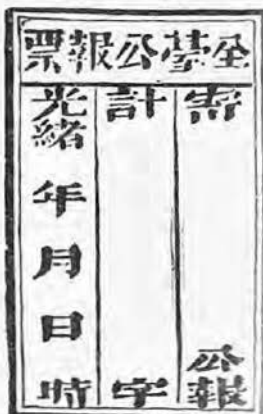 全臺公報票
公報
計 字
光緒 年 月 日 時